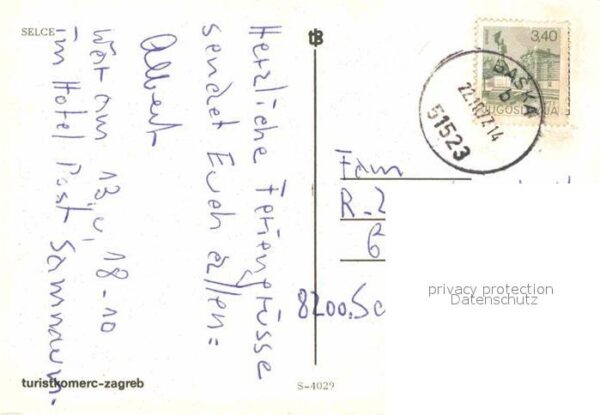 SELCE
Herzliche Feriengrüsse
sendet Euch allen:
Albert
War am 13 u, 18-10
im Hotel Post Samnaun.
turistkomerc-zagreb
S-4029
tB
3,40
JUGOSLAVIJA
BAŠKA
b
22.10.77.14
51523
Fam
R
6
8200 Sc
privacy protection
Datenschutz